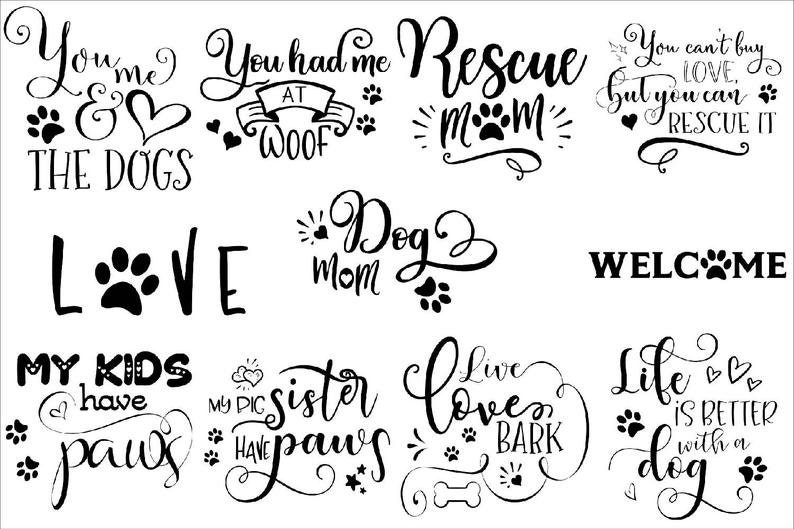 You
me
&
THE DOGS
You had me
AT
WOOF
Rescue
MOM
You can't buy
LOVE,
but you can
RESCUE IT
LOVE
Dog
MOM
WELCOME
MY KIDS
have
paws
MY PIG sister
HAVE paws
Live
love
BARK
Life
IS BETTER
with a
dog